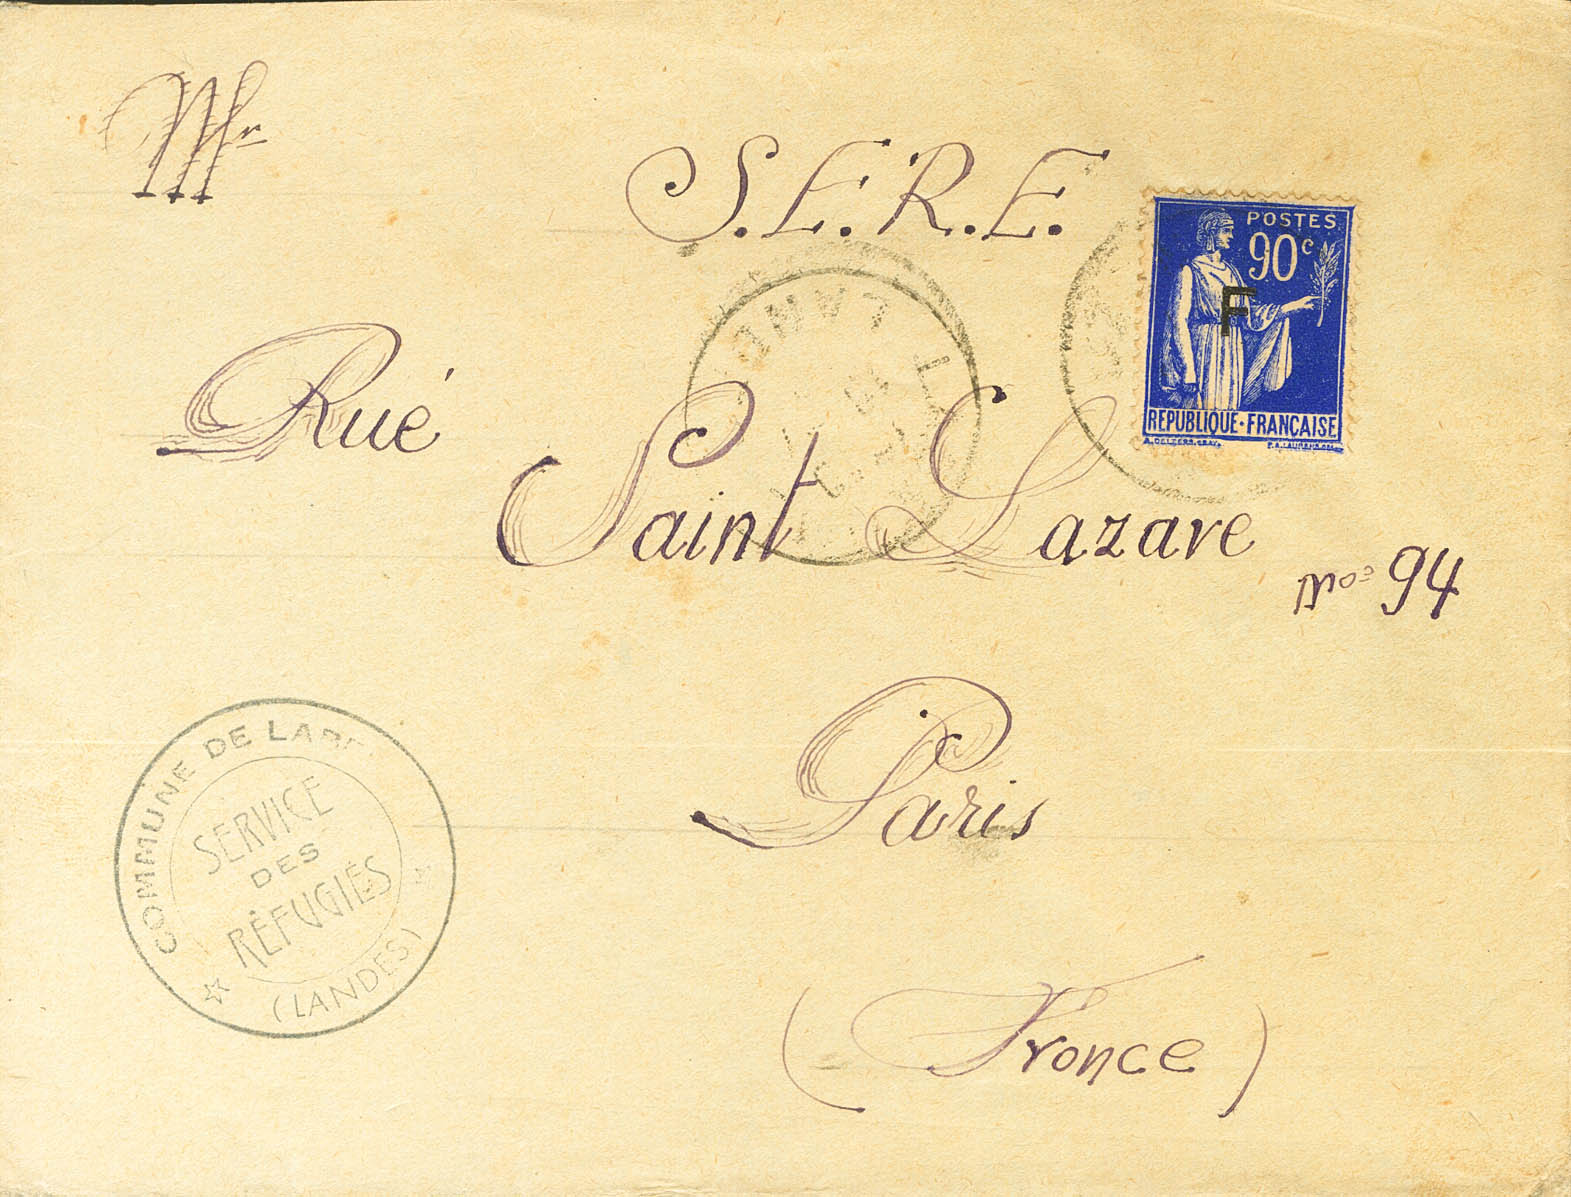 Mr
S.E.R.E.
POSTES
90c
F
REPUBLIQUE·FRANÇAISE
LAND
Rué
Saint Lazare
Nº= 94
Paris
(Fronce)
COMMUNE DE
SERVICE
DES
RÉFUGIÉS
(LANDES)